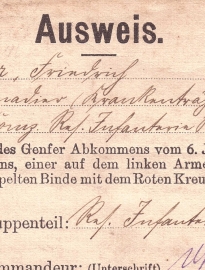 Ausweis.
Friedrich
Krankenträ
Res. Infanterie
des Genfer Abkommens vom 6. J
ns, einer auf dem linken Arme
pelten Binde mit dem Roten Kreu
uppenteil: Res. Infanter
mmandeur: (Unterschrift)